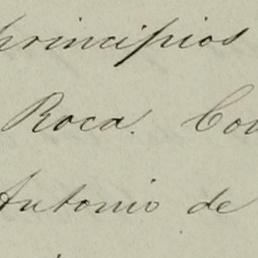 principios
Roca. Con
Antonio de